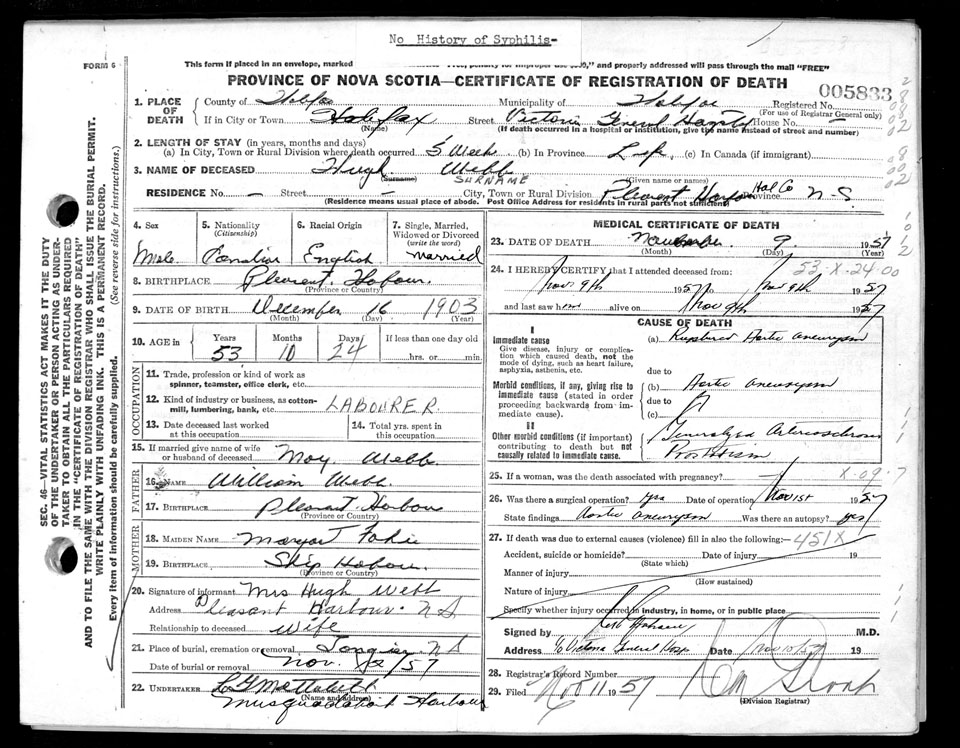 No History of Syphilis-
FORM 6
This form if placed in an envelope, marked and properly addressed will pass through the mail "FREE"
PROVINCE OF NOVA SCOTIA—CERTIFICATE OF REGISTRATION OF DEATH
005833
1. PLACE OF DEATH
County of Halifax Municipality of Halifax Registered No.
(For use of Registrar General only)
If in City or Town Halifax Street Victoria General Hospital House No. -
(Name) (If death occurred in a hospital or institution, give the name instead of street and number)
2. LENGTH OF STAY (in years, months and days)
(a) In City, Town or Rural Division where death occurred 5 Week (b) In Province Life (c) In Canada (if immigrant)
3. NAME OF DECEASED Hugh Webb
(Surname) SURNAME (Given name or names)
RESIDENCE No. - Street - City, Town or Rural Division Pleasant Harbour Hal Co Province N S
(Residence means usual place of abode. Post Office Address for residents in rural parts not sufficient)
4. Sex Male
5. Nationality (Citizenship) Canadian
6. Racial Origin English
7. Single, Married, Widowed or Divorced (write the word) married
8. BIRTHPLACE Pleasant Harbour
(Province or Country)
9. DATE OF BIRTH December 16 1903
(Month) (Day) (Year)
10. AGE in Years 53 Months 10 Days 24 If less than one day old
hrs. or min.
OCCUPATION
11. Trade, profession or kind of work as spinner, teamster, office clerk, etc.
12. Kind of industry or business, as cotton-mill, lumbering, bank, etc. LABOURER.
13. Date deceased last worked at this occupation
14. Total yrs. spent in this occupation
15. If married give name of wife or husband of deceased May Webb
FATHER
16. NAME William Webb
17. BIRTHPLACE Pleasant Harbour
(Province or Country)
MOTHER
18. MAIDEN NAME
19. BIRTHPLACE Ship Harbour
(Province or Country)
20. Signature of informant Mrs Hugh Webb
Address Pleasant Harbour. N S
Relationship to deceased Wife
21. Place of burial, cremation or removal Tangier. N S
Date of burial or removal Nov. 12/57
22. UNDERTAKER
(Name and address)
Musquodoboit Harbour
MEDICAL CERTIFICATE OF DEATH
23. DATE OF DEATH November 9. 1957
(Month) (Day) (Year)
24. I HEREBY CERTIFY that I attended deceased from:
53-X-24-00
Nov 9th 1957 to Nov 9th 1957
and last saw him alive on Nov 9th 1957
CAUSE OF DEATH
I
Immediate cause
Give disease, injury or complication which caused death, not the mode of dying, such as heart failure, asphyxia, asthenia, etc.
(a) Ruptured Aortic aneurysm
due to
Morbid conditions, if any, giving rise to immediate cause (stated in order proceeding backwards from immediate cause).
(b) Aortic aneurysm
due to
(c)
II
Other morbid conditions (if important) contributing to death but not causally related to immediate cause.
Generalized Arteriosclerosis
25. If a woman, was the death associated with pregnancy?
X-09-7
26. Was there a surgical operation? yes Date of operation Nov 1st 1957
State findings Aortic aneurysm Was there an autopsy? yes
27. If death was due to external causes (violence) fill in also the following:- 451X
Accident, suicide or homicide? Date of injury 19
(State which)
Manner of injury
(How sustained)
Nature of injury
Specify whether injury occurred in industry, in home, or in public place
Signed by M.D.
Address c/o Victoria General Hosp. Date Nov 10/57 19
28. Registrar's Record Number
29. Filed Nov 11 1957
(Division Registrar)
SEC. 46—VITAL STATISTICS ACT MAKES IT THE DUTY OF THE UNDERTAKER OR PERSON ACTING AS UNDERTAKER TO OBTAIN ALL THE PARTICULARS REQUIRED IN THE "CERTIFICATE OF REGISTRATION OF DEATH" AND TO FILE THE SAME WITH THE DIVISION REGISTRAR WHO SHALL ISSUE THE BURIAL PERMIT.
WRITE PLAINLY WITH UNFADING INK. THIS IS A PERMANENT RECORD.
Every item of information should be carefully supplied. (See reverse side for instructions.)